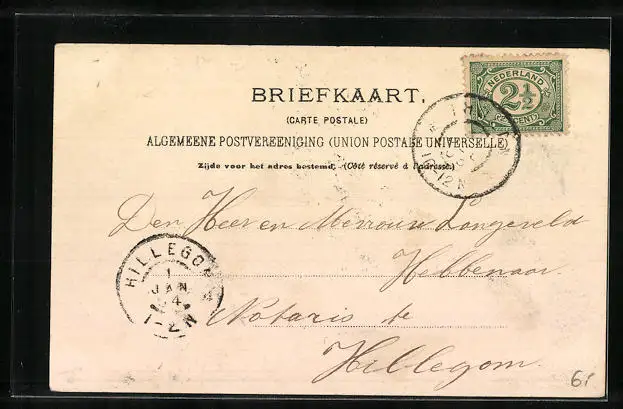 BRIEFKAART.
(CARTE POSTALE)
ALGEMEENE POSTVEREENIGING (UNION POSTALE UNIVERSELLE)
Zijde voor het adres bestemd. (Côté réservé à l'adresse.)
NEDERLAND
2½
CENT
10-12 N
Den Heer en Mevrouw Langeveld
Hebbenaar.
Notaris te
Hillegom.
HILLEGOM
1
JAN
4
1-2N
61